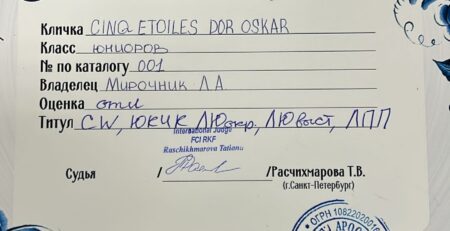 Кличка CINQ ETOILES DOR OSKAR
Класс юниоров
№ по каталогу 001
Владелец Мирочник Л.А.
Оценка отл
Титул CW, ЮКЧК, ЛЮокр, ЛЮвыст, ЛПП
International Judge
FCI RKF
Raschikhmarova Tatiana
Судья / /Расчихмарова Т.В.
(г.Санкт-Петербург)
* ОГРН 1082202001